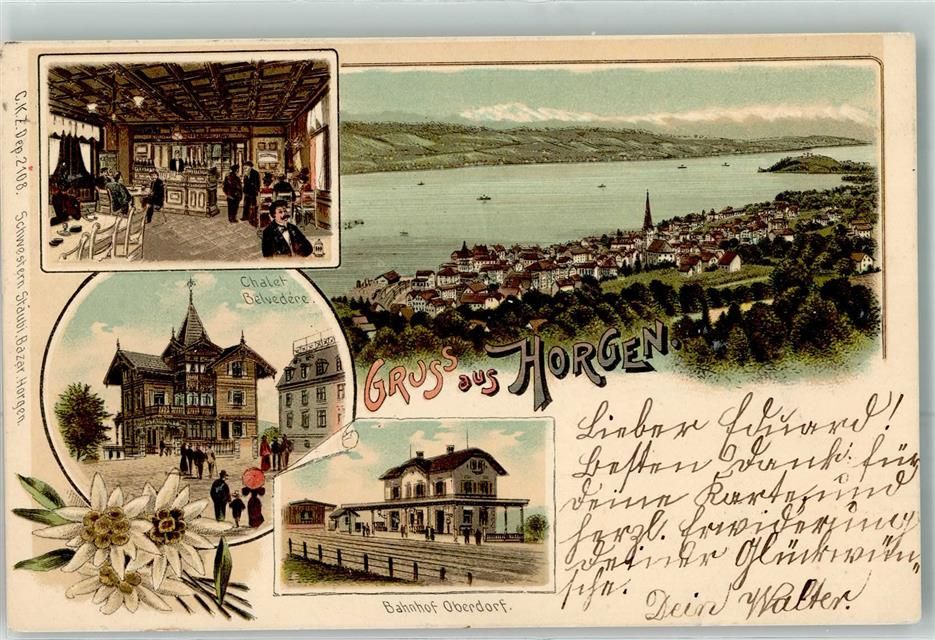 C.K.Z. Dep. 2108. Schwestern Stäubli, Bazar, Horgen.
Chalet
Belvedére.
GRUSS aus HORGEN.
Bahnhof Oberdorf.
Lieber Eduard!
Besten Dank für
deine Karte, und
herzl. Erwiderung
deiner Glückwün-
sche.
Dein Walter.